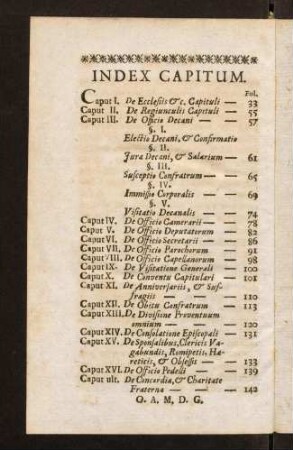 INDEX CAPITUM.
Fol.
Caput I. De Ecclesiis &c. Capituli — 33
Caput II. De Regiunculis Capituli — 55
Caput III. De Officio Decani — 57
§. I.
Electio Decani, & Confirmatio
§. II.
Jura Decani, & Salarium — 61
§. III.
Susceptio Confratrum — 65
§. IV.
Immissio Corporalis — 69
§. V.
Visitatio Decanalis — 74
Caput IV. De Officio Camerarii — 78
Caput V. De Officio Deputatorum 82
Caput VI. De Officio Secretarii — 86
Caput VII. De Officio Parochorum 91
Caput VIII. De Officio Capellanorum 98
Caput IX. De Visitatione Generali 100
Caput X. De Conventu Capitulari 101
Caput XI. De Anniversariis, & Suf-
fragiis — — 110
Caput XII. De Obitu Confratrum 113
Caput XIII. De Divisione Proventuum
omnium — — 120
Caput XIV. De Consolatione Episcopali — 131
Caput XV. De Sponsalibus, Clericis Va-
gabundis, Romipetis, Hæ-
reticis, & Obsessis — 133
Caput XVI. De Officio Pedelli — 139
Caput ult. De Concordia, & Charitate
Fraterna — — 142
O. A. M. D. G.